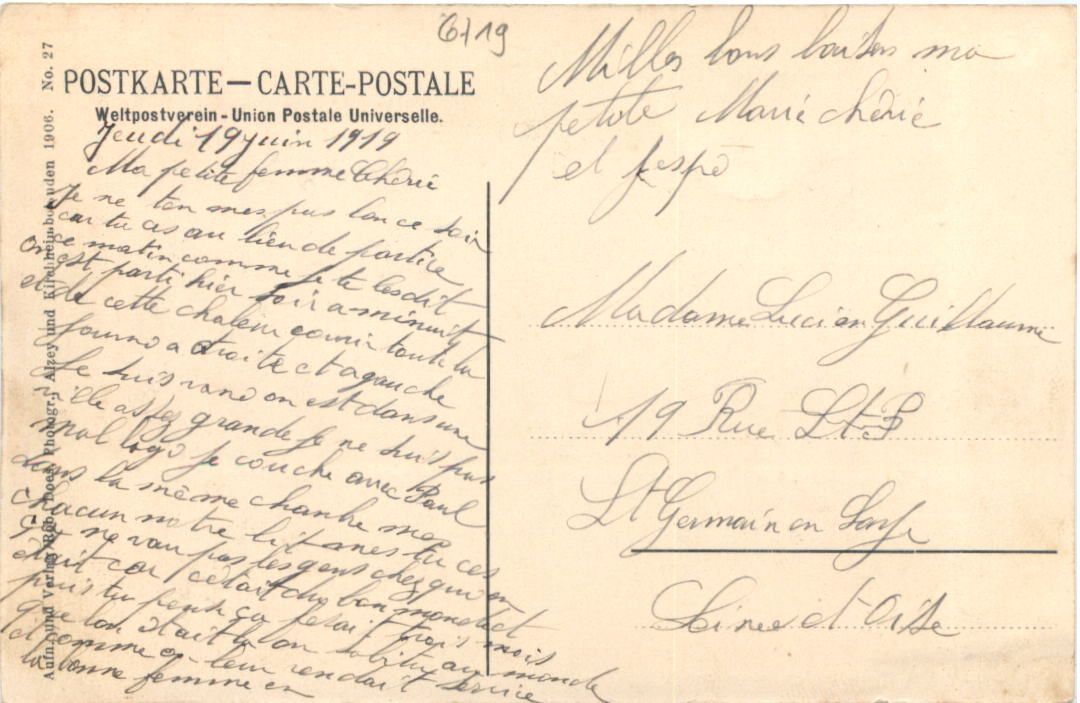 6/19
POSTKARTE — CARTE-POSTALE
Weltpostverein - Union Postale Universelle.
Jeudi 19 juin 1919
Ma petite femme Chérie
Je ne ten mes pas lon ce soir
car tu as au lieu de partire
ce matin comme je te les dit
on est parti hier soir a minuit
et de cette chaleur courir toute la
journo a droite et a gauche
Je suis rano on est dans une
ville assez grande je ne suis pas
mal logo je couche avec Paul
dans la même chanbre mes
chacun notre lit mes tu ces
ne vau pas les gens chez qui on
était car cétait de bon monde et
puis tu pense ça fesait trois mois
que lon était la on abitue au monde
et comme on leur rendait service
la bonne femme en
Milles bons baisers ma
petite Marie chérie
et jespo
Madame Lucien Guillaume
19 Rue St. P
St Germain en Laye
Seine et Oise
Aufn. und Verlag Rob. Photogr., Alzey und Kirchheimbolanden 1906. No. 27